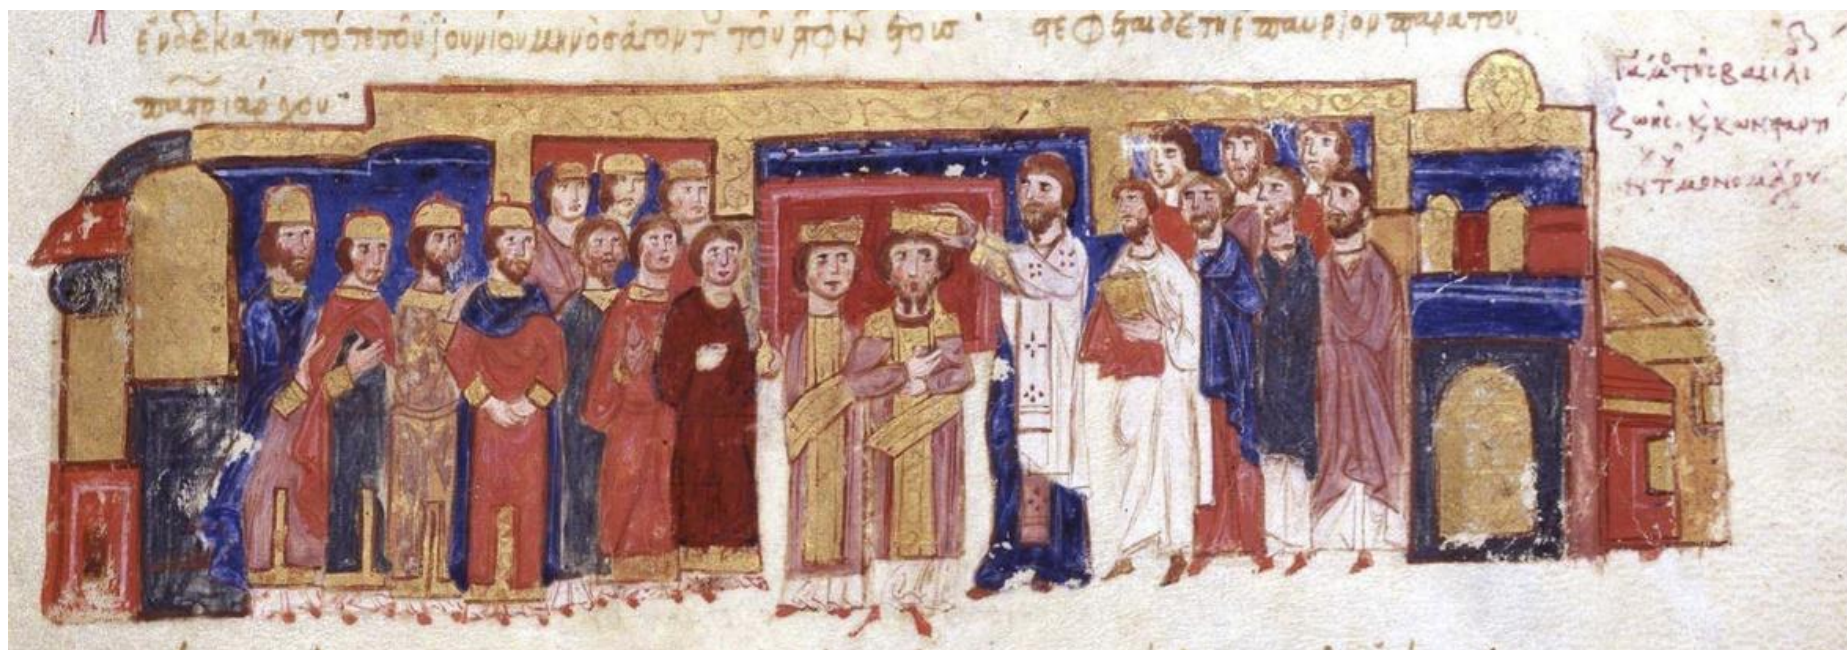 ἑνδεκάτην τότε τοῦ ἰουνίου μηνὸς ἄγοντ τοῦ · στεφθεὶς δὲ τῆ ἐπαύριον παρὰ τοῦ
πατριάρχου
γάμο τῆς βασιλι
ζωῆς κωνσταντ
μονομάχου